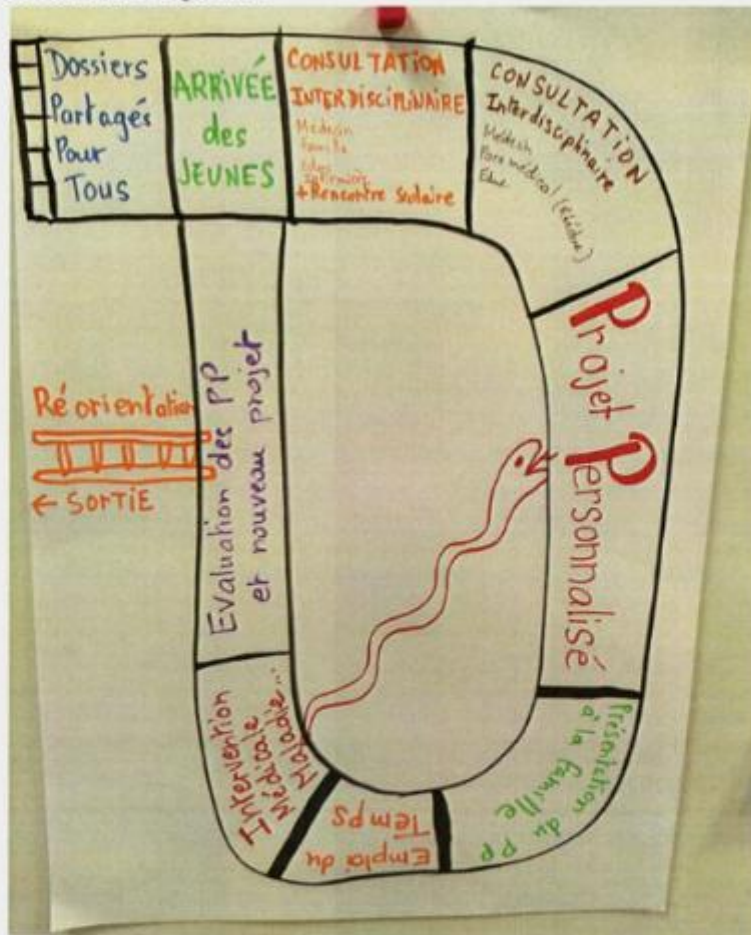 Dossiers
Partagés
Pour
Tous
ARRIVÉE
des
JEUNES
CONSULTATION
INTERDISCIPLINAIRE
Médecin
Famille
Educ
Infirmière
+ Rencontre Scolaire
CONSULTATION
Interdisciplinaire
Médecin
Paramédical (rééduc)
Educ
Projet Personnalisé
Présentation du PP
à la famille
Emploi du
Temps
Intervention
Médicale
Maladie...
Evaluation des PP
et nouveau projet
Réorientation
← SORTIE